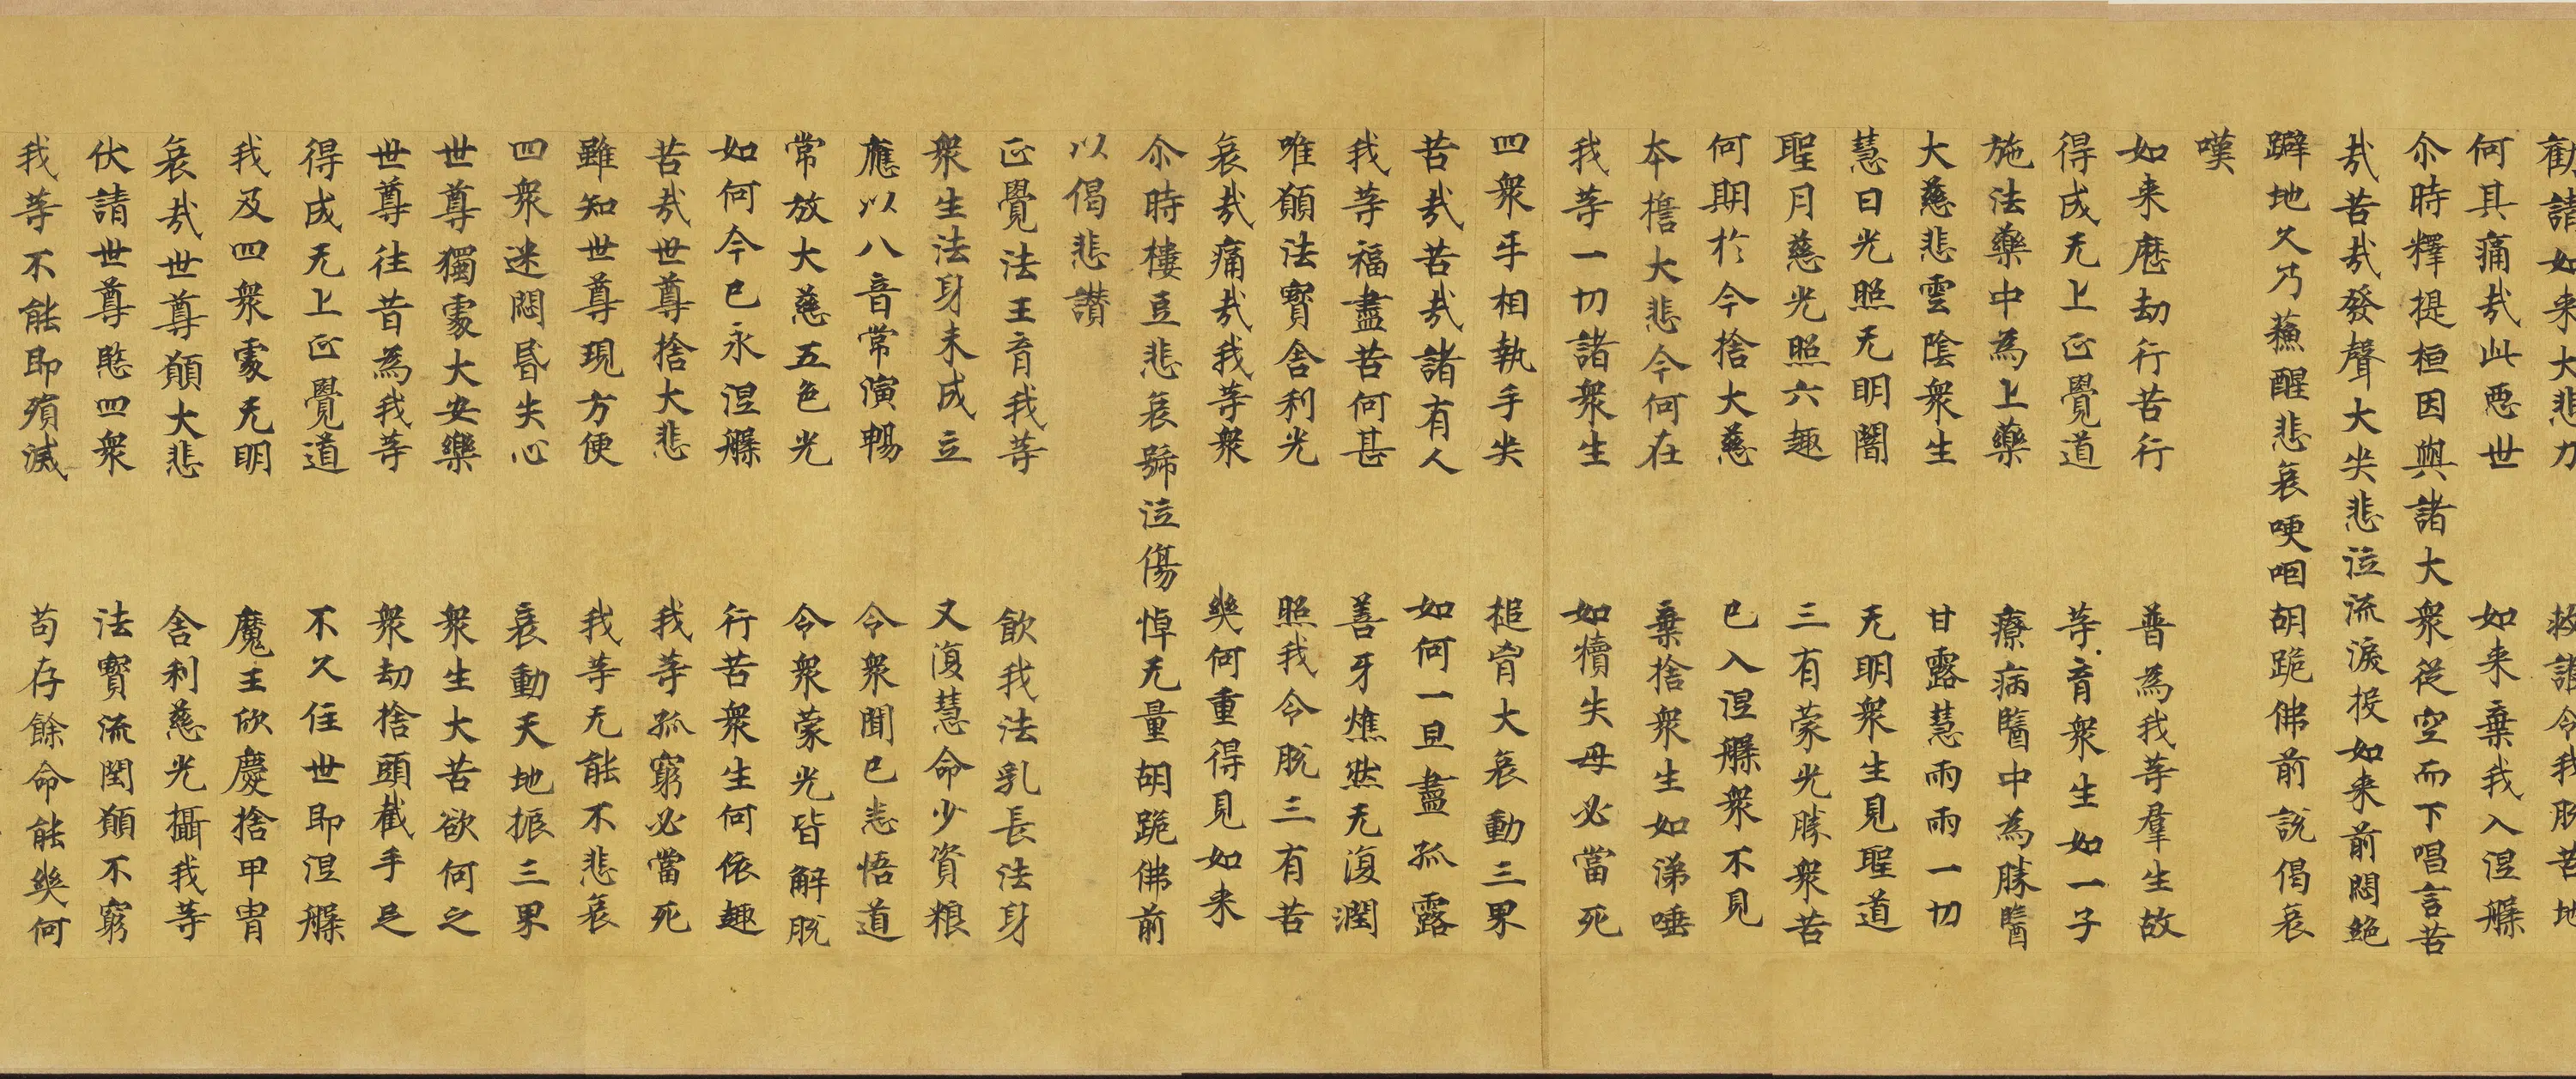 勸請如来大悲力　救護令我脫苦地
何其痛㢤此惡世　如来棄我入涅槃
尒時釋提桓因與諸大衆從空而下唱言苦
㢤苦㢤發聲大哭悲泣流淚投如来前悶絕
躃地久乃蘓醒悲哀哽咽胡跪佛前說偈哀
嘆
如来歷劫行苦行　普為我等羣生故
得成无上正覺道　等育衆生如一子
施法藥中為上藥　療病醫中為勝醫
大慈悲雲陰衆生　甘露慧雨雨一切
慧日光照无明闇　无明衆生見聖道
聖月慈光照六趣　三有蒙光勝衆苦
何期於今捨大慈　已入涅槃衆不見
本擔大悲今何在　棄捨衆生如涕唾
我等一切諸衆生　如犢失母必當死
四衆手相執手哭　搥胷大哀動三界
苦㢤苦㢤諸有人　如何一旦盡孤露
我等福盡苦何甚　善牙燋然无復潤
唯願法寳舍利光　照我令脫三有苦
哀㢤痛㢤我等衆　幾何重得見如来
尒時樓豆悲哀號泣傷悼无量胡跪佛前
以偈悲讚
正覺法王育我等　飲我法乳長法身
衆生法身未成立　又復慧命少資粮
應以八音常演暢　令衆聞已悉悟道
常放大慈五色光　令衆蒙光皆解脫
如何今已永涅槃　行苦衆生何依趣
苦㢤世尊捨大悲　我等孤窮必當死
雖知世尊現方便　我等无能不悲哀
四衆迷悶昏失心　哀動天地振三界
世尊獨處大安樂　衆生大苦欲何之
世尊往昔為我等　衆劫捨頭截手足
得成无上正覺道　不久住世即涅槃
我及四衆處无明　魔王欣慶捨甲冑
哀㢤世尊願大悲　舍利慈光攝我等
伏請世尊愍四衆　法寳流閏願不窮
我等不能即殞滅　苟存餘命能幾何